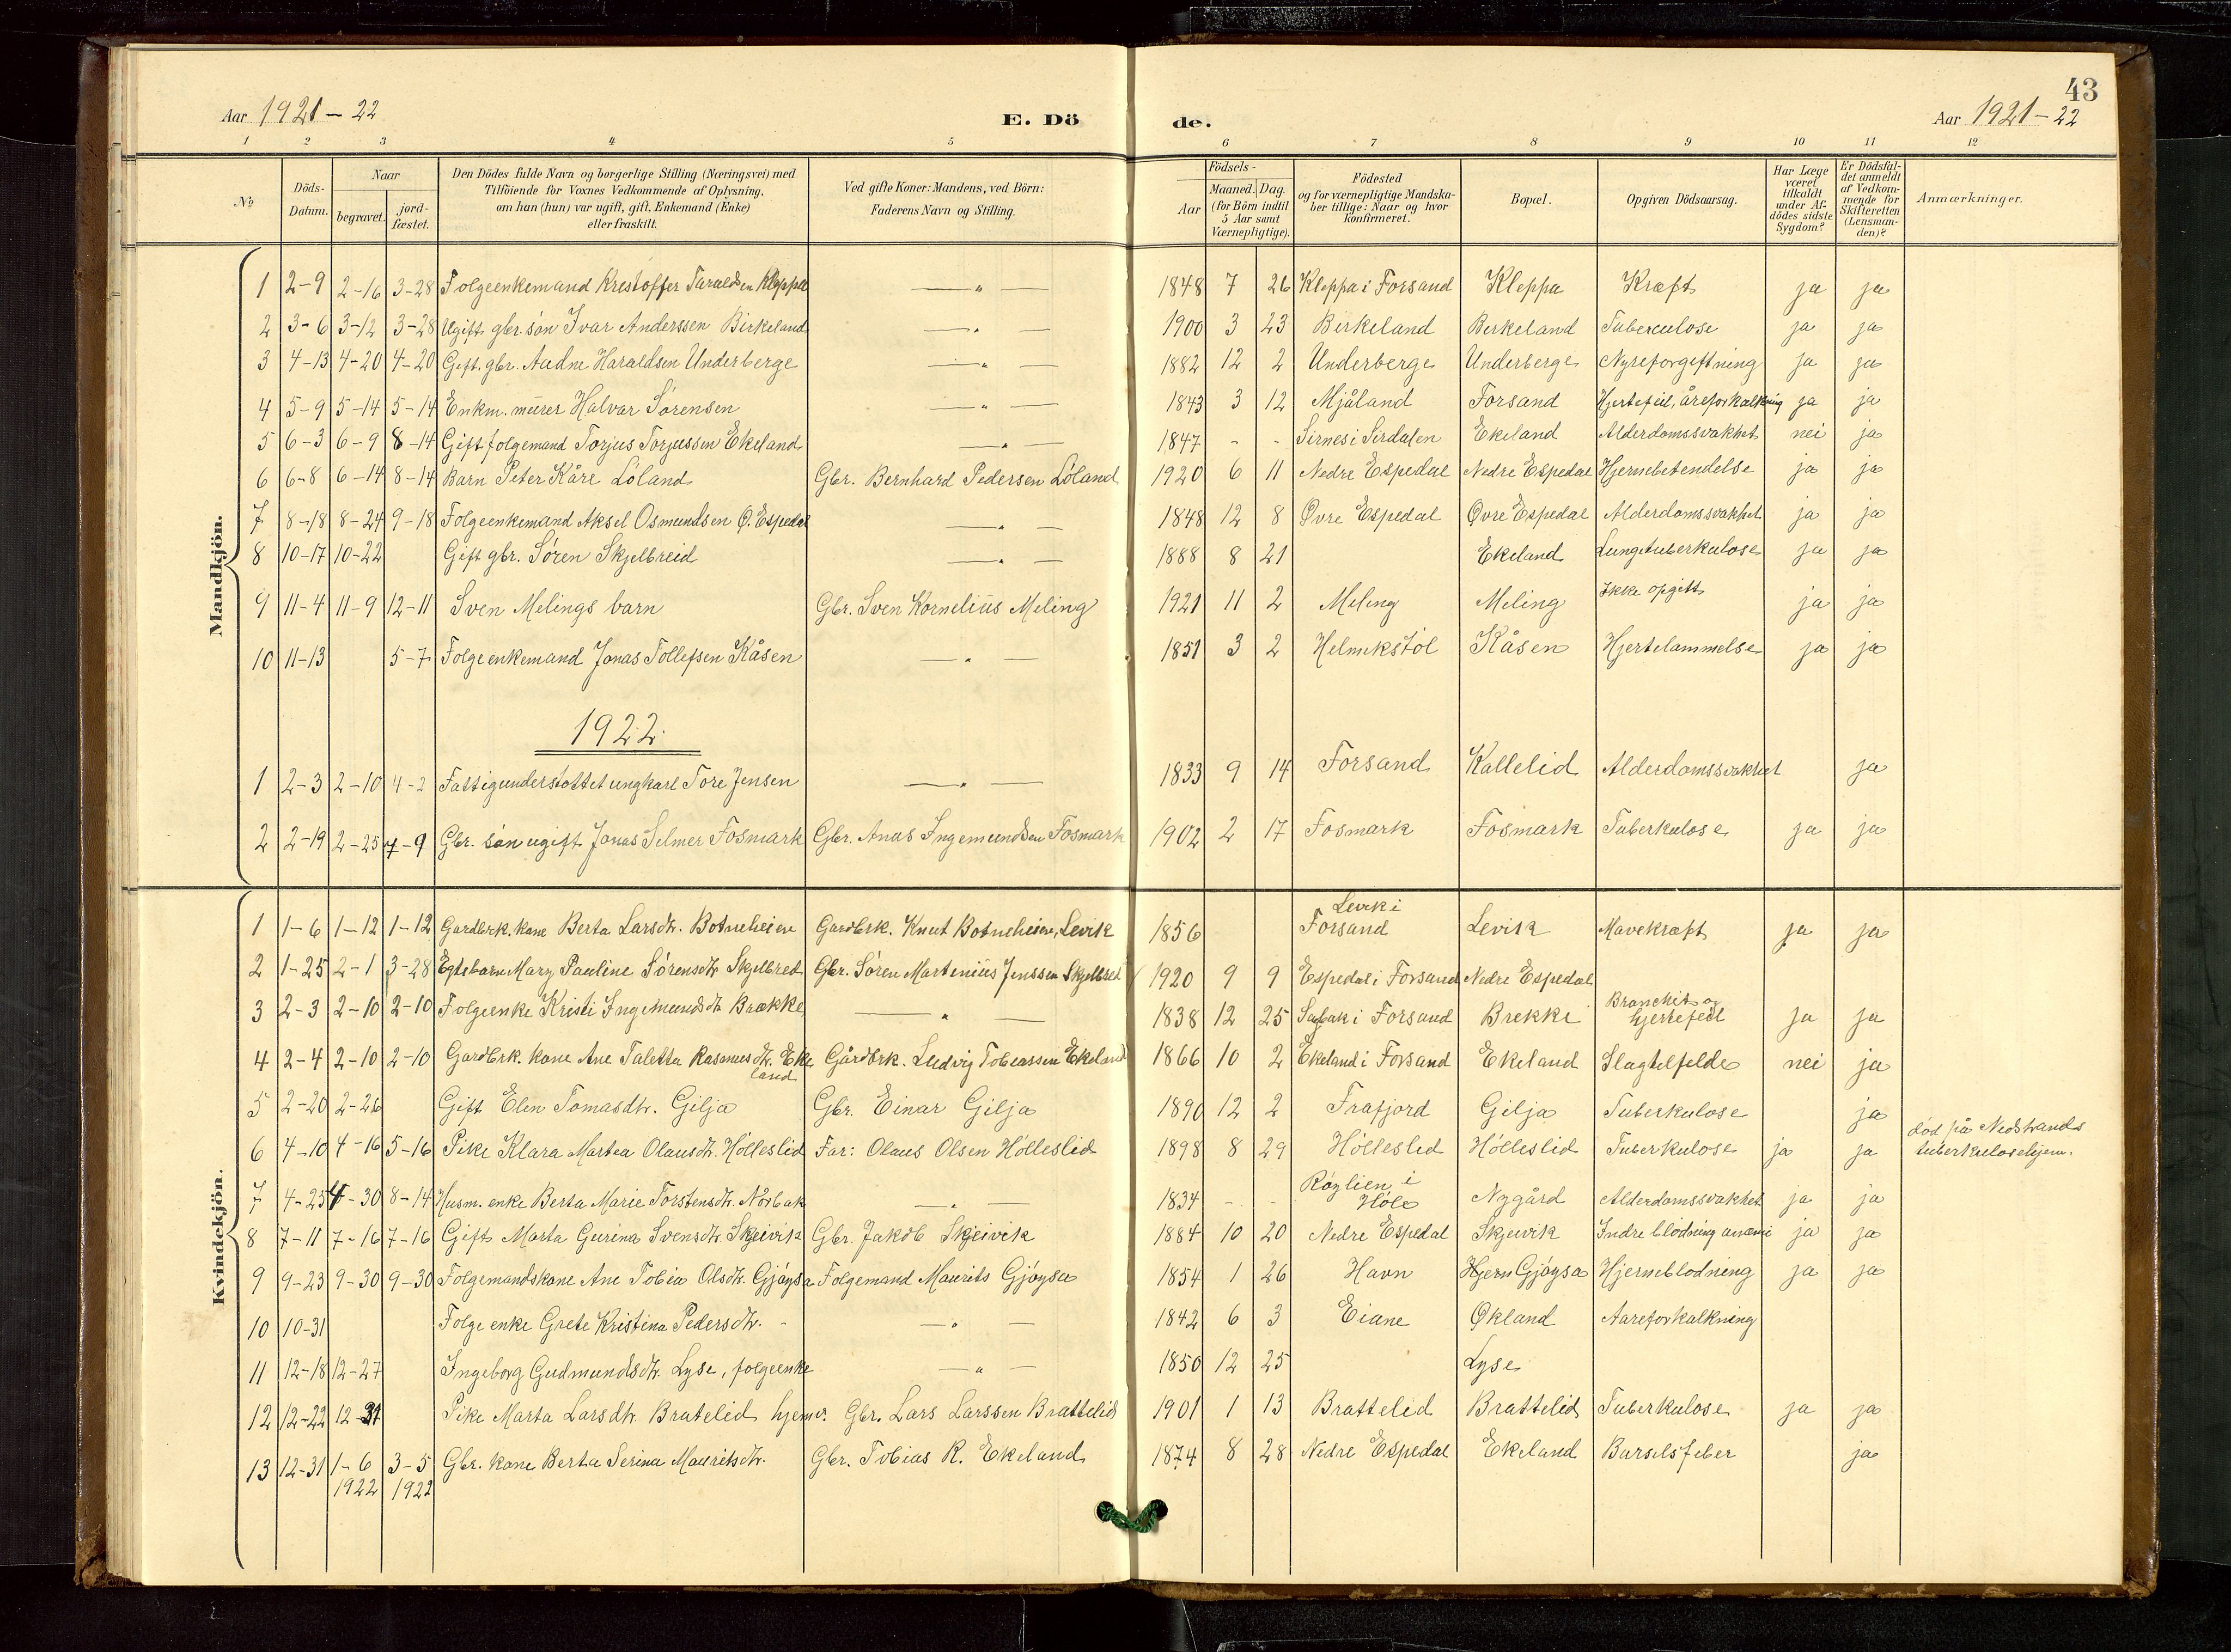 43
Aar 1921-22 E. Dö de. Aar 1921-22
1 2 3 4 5 6 7 8 9 10 11 12
No Döds-Datum. Naar begravet. jord-fæstet. Den Dödes fulde Navn og borgerlige Stilling (Næringsvei) med Tilföiende for Voxnes Vedkommende af Oplysning, om han (hun) var ugift, gift, Enkemand (Enke) eller fraskilt. Ved gifte Koner: Mandens, ved Börn: Faderens Navn og Stilling. Födsels- Aar Maaned. Dag. (for Börn indtil 5 Aar samt Værnepligtige). Födested og for værnepligtige Mandska-ber tillige: Naar og hvor konfirmeret. Bopæl. Opgiven Dödsaarsag. Har Læge været tilkaldt under Af-dödes sidste Sygdom? Er Dödsfal-det anmeldt af Vedkom-mende for Skifteretten (Lensman-den)? Anmærkninger.
Mandkjön.
1 2-9 2-16 3-28 Folgeenkemand Kristoffer Taraldsen Kleppa —"— 1848 7 26 Kleppa i Forsand Kleppa Kræft ja ja
2 3-6 3-12 3-28 Ugift gbr. sön Ivar Anderssen Birkeland —"— 1900 3 23 Birkeland Birkeland Tuberculose ja ja
3 4-13 4-20 4-20 Gift gbr. Aadne Haraldsen Underberge —"— 1882 12 2 Underberge Underberge Nyreforgiftning ja ja
4 5-9 5-14 5-14 Enkm. mürer Halvar Sörensen —"— 1843 3 12 Mjåland Forsand Hjertefeil, åreforkalkning ja ja
5 6-3 6-9 8-14 Gift folgemand Torjus Torjussen Ekeland —"— 1847 - - Sirnes i Sirdalen Ekeland Alderdomssvakhet nei ja
6 6-8 6-14 8-14 Barn Peter Kåre Löland Gbr. Bernhard Pedersen Löland 1920 6 11 Nedre Espedal Nedre Espedal Hjernebetendelse ja ja
7 8-18 8-24 9-18 Folgeenkemand Aksel Osmundsen Ø. Espedal —"— 1848 12 8 Øvre Espedal Øvre Espedal Alderdomssvakhet ja ja
8 10-17 10-22 Gift gbr. Sören Skjelbreid —"— 1888 8 21 Ekeland Lungetuberkulose ja ja
9 11-4 11-9 12-11 Sven Melings barn Gbr. Sven Kornelius Meling 1921 11 2 Meling Meling Ikke opgitt ja ja
10 11-13 5-7 Folgeenkemand Jonas Tollefsen Kåsen —"— 1851 3 2 Helmikstöl Kåsen Hjertelammelse ja ja
1922.
1 2-3 2-10 4-2 Fattigunderstottet ungkarl Tore Jensen —"— 1833 9 14 Forsand Kallelid Alderdomssvakhet ja
2 2-19 2-25 7-9 Gbr. sön ugift Jonas Selmer Fosmark Gbr. Anas Ingemundsen Fosmark 1902 2 17 Fosmark Fosmark Tuberkulose ja ja
Kvindekjön.
1 1-6 1-12 1-12 Gardbrk. kone Berta Larsdtr. Botneheien Gardbrk. Knut Botneheien, Levik 1856 Levik i Forsand Levik Mavekræft ja ja
2 1-25 2-1 3-28 Egtebarn Mary Pauline Sörensdtr Skjelbred Gbr. Sören Martenius Jenssen Skjelbred 1920 9 9 Espedal i Forsand Nedre Espedal
3 2-3 2-10 2-10 Folgeenke Kristi Ingemundsdtr Brække —"— 1838 12 25 i Forsand Brekke Bronchit og hjertefeil ja ja
4 2-4 2-10 2-10 Gardbrk. kone Ane Taletta Rasmusdtr. Eke land Gårdbrk. Ludvig Tobiassen Ekeland 1866 10 2 Ekeland i Forsand Ekeland Slagtilfelde nei ja
5 2-20 2-26 Gift Elen Tomasdtr. Gilja Gbr. Einar Gilja 1890 12 2 Frafjord Gilja Tuberkulose ja
6 4-10 4-16 5-16 Pike Klara Martea Olausdtr. Hölleslid Far: Olaus Olsen Hölleslid 1898 8 29 Hölleslid Hölleslid Tuberkulose ja ja död på Nedstrands tuberkulosehjem.
7 4-25 4-30 8-14 Husm. enke Berta Marie Torstensdtr. Nörbak —"— 1834 - - Röylien i Höle Nygård Alderdomssvakhet ja ja
8 7-11 7-16 7-16 Gift Marta Gurina Svensdtr. Skjeivik Gbr. Jakob Skjeivik 1884 10 20 Nedre Espedal Skjeivik Indre blödning anæmi ja ja
9 9-23 9-30 9-30 Folgemandskone Ane Tobia Olsdtr. Gjöysa Folgemand Maurits Gjöysa 1854 1 26 Havn Gjöysa Hjerneblodning ja ja
10 10-31 Folge enke Grete Kristina Pedersdtr. - —"— 1842 6 3 Eiane Økland Aareforkalkning
11 12-18 12-27 Ingeborg Gudmundsdtr. Lyse, folgeenke —"— 1850 12 25 Lyse
12 12-22 12-31 Pike Marta Larsdtr. Bratelid hjemv. Gbr. Lars Larssen Brattelid 1901 1 13 Brattelid Brattelid Tuberkulose ja ja
13 12-31 1-6 1922 3-5 1922 Gbr. kone Berta Serina Mauritsdtr. Gbr. Tobias R. Ekeland 1874 8 28 Nedre Espedal Ekeland Barselsfeber ja